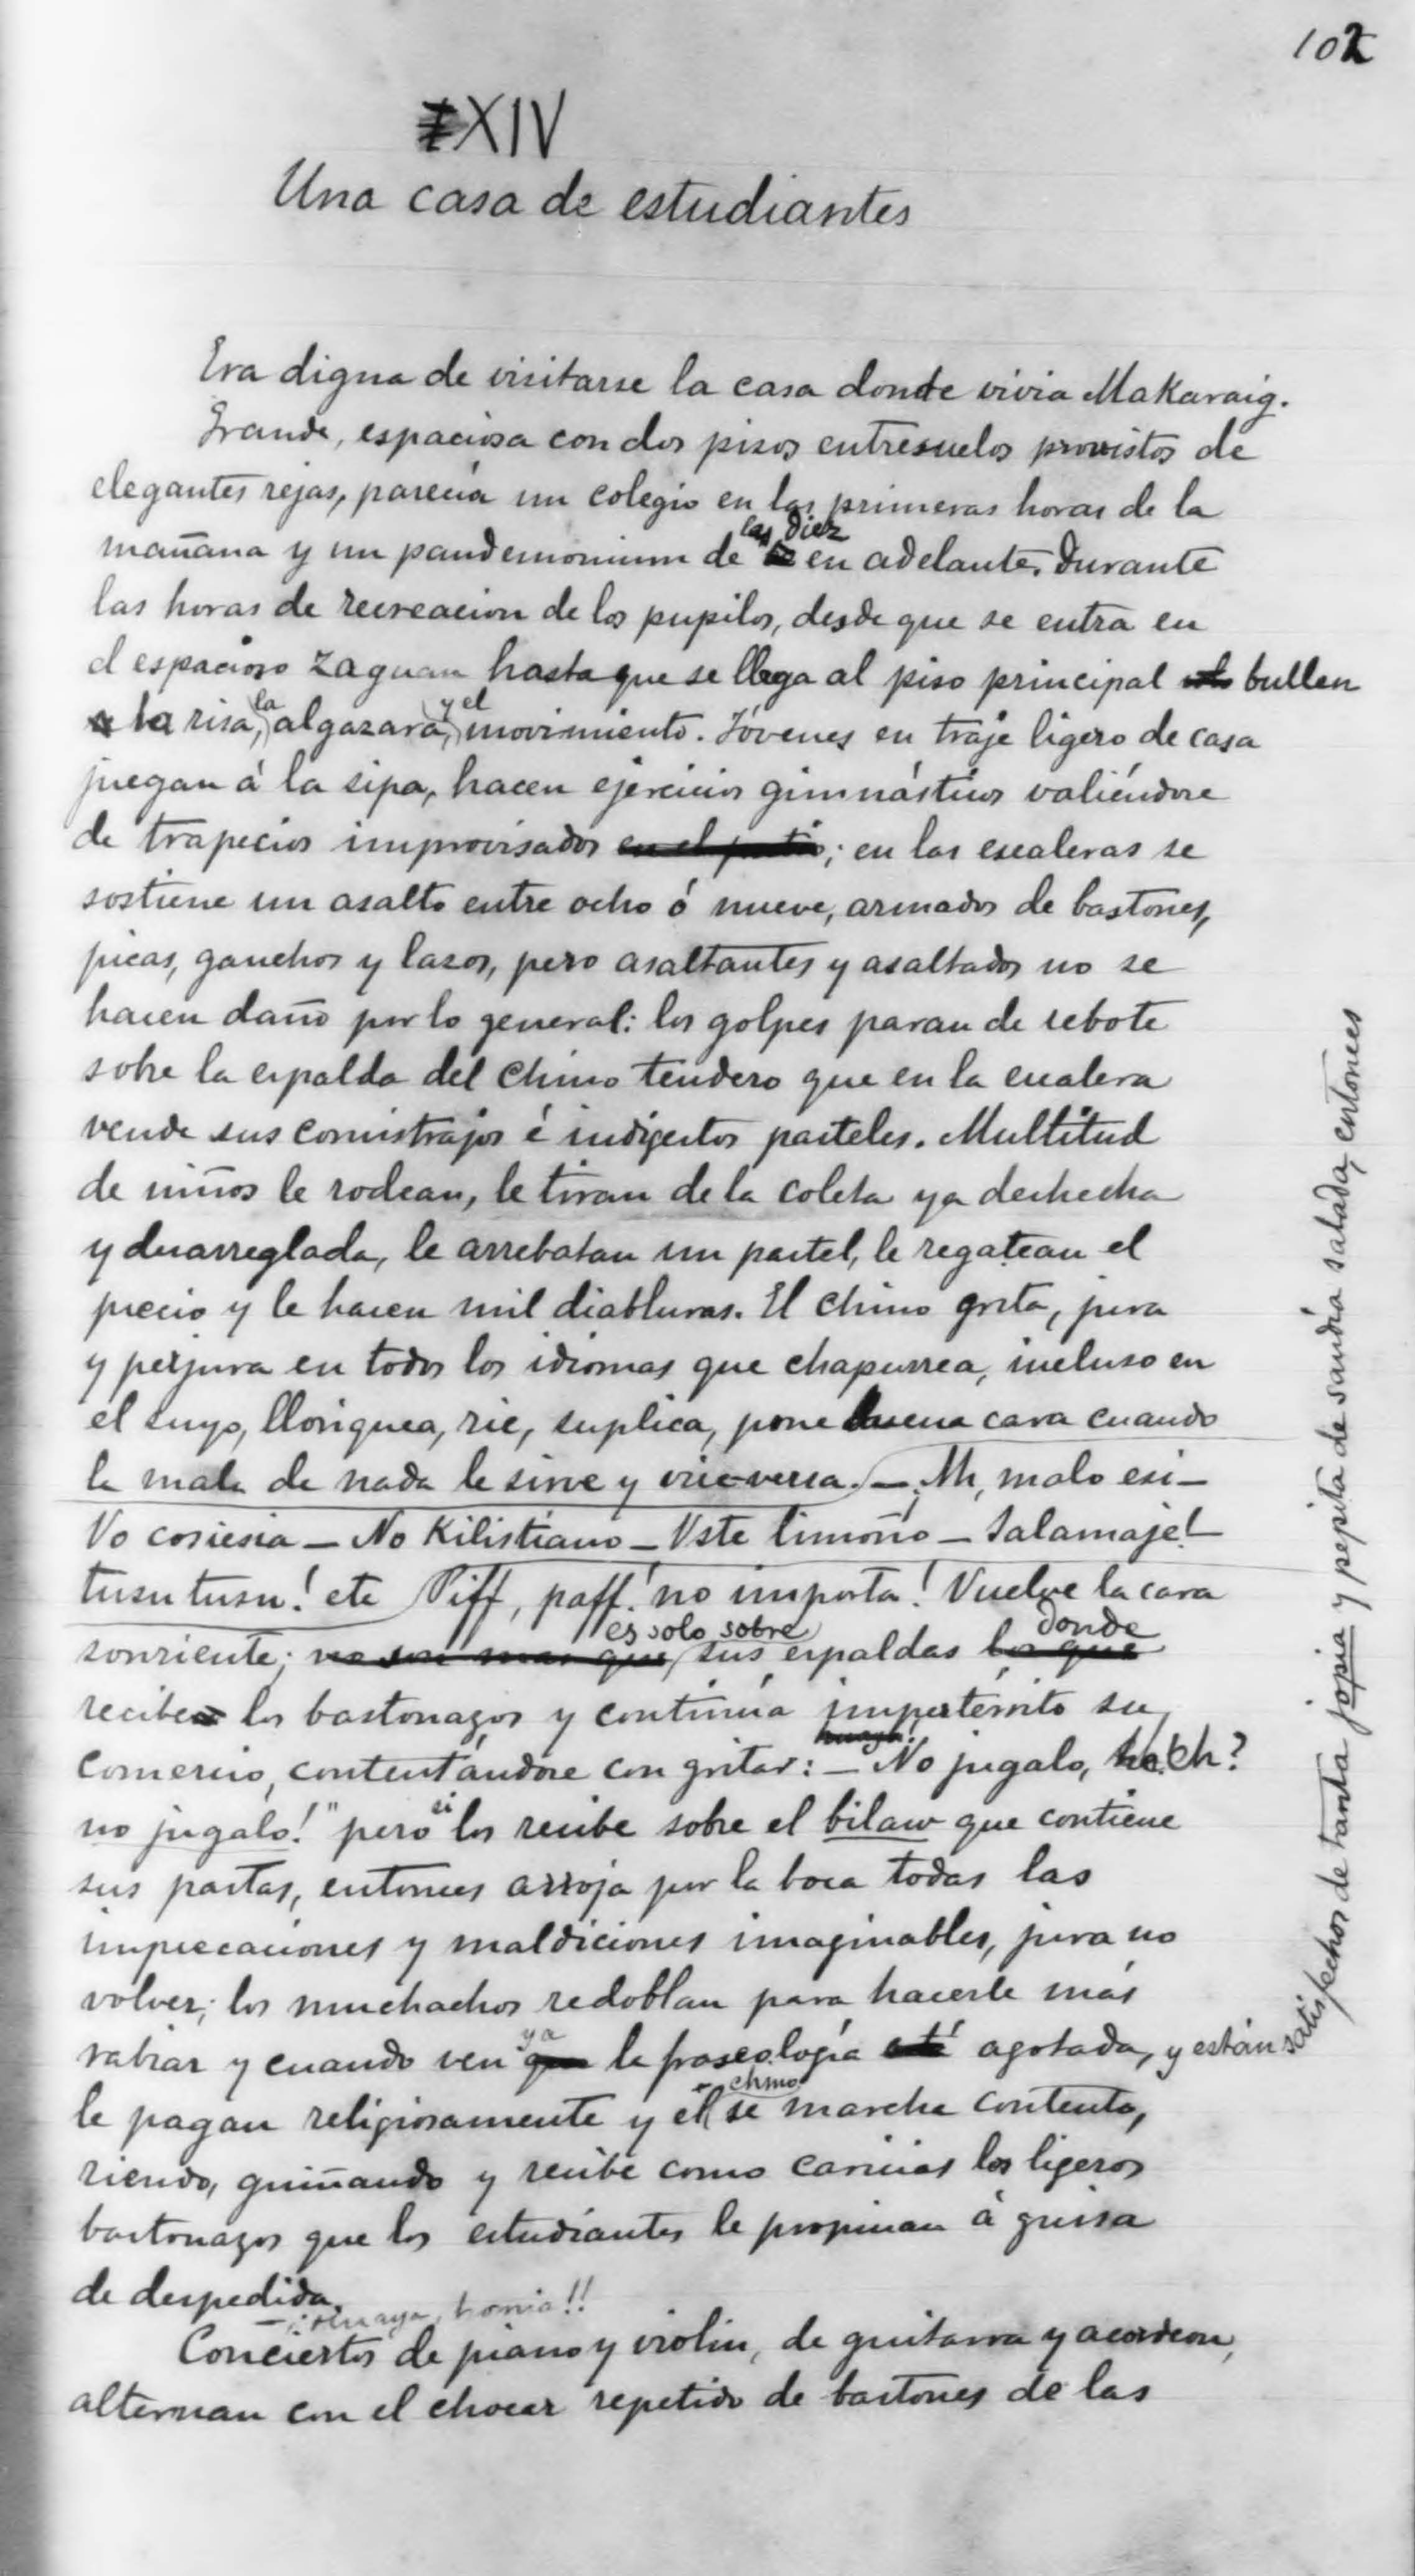 102
XIV
Una casa de estudiantes
Era digna de visitarse la casa donde vivia Makaraig.
Grande, espaciosa con dos pisos entresuelos provistos de
elegantes rejas, parecía un colegio en las primeras horas de la
las diez
mañana y un pandemonium de en adelante. Durante
las horas de recreacion de los pupilos, desde que se entra en
el espacioso zaguan hasta que se llega al piso principal bullen
la y el
la risa, algazara, movimiento. Jóvenes en traje ligero de casa
juegan á la sipa, hacen ejercicios gimnásticos valiéndose
de trapecios improvisados en el patio; en las escaleras se
sostiene un asalto entre ocho ó nueve, armados de bastones,
picas, ganchos y lazos, pero asaltantes y asaltados no se
hacen daño por lo general: los golpes paran de rebote
sobre la espalda del chino tendero que en la escalera
vende sus comistrajos é indigestos pasteles. Multitud
de niños le rodean, le tiran de la coleta ya deshecha
y desarreglada, le arrebatan un pastel, le regatean el
precio y le hacen mil diabluras. El chino grita, jura
y perjura en todos los idiomas que chapurrea, incluso en
el suyo, lloriquea, rie, suplica, pone buena cara cuando
la mala de nada le sirve y vice-versa. — ¡Ah, malo esi —
Vo cosiesia — No Kilistiano — Uste limoño — Salamaje! —
tusu tusu! etc Piff, paff! no importa! Vuelve la cara
es solo sobre donde
sonriente; no son mas que sus espaldas los que
recibe los bastonazos y continúa impertérrito su
comercio, contentándose con gritar: — No jugalo, eh?
si
no jugalo!" pero los recibe sobre el bilaw que contiene
sus pastas, entonces arroja por la boca todas las
imprecaciones y maldiciones imaginables, jura no
volver; los muchachos redoblan para hacerle más
ya
rabiar y cuando ven que la fraseología está agotada, y están
satisfechos de tanta jopia y pepita de sandía salada, entonces
chino
le pagan religiosamente y el se marcha contento,
riendo, guiñando y recibe como caricias los ligeros
bastonazos que los estudiantes le propinan á guisa
de despedida.
homia!!
Conciertos de piano y violin, de guitarra y acordeon,
alternan con el chocar repetido de bastones de las